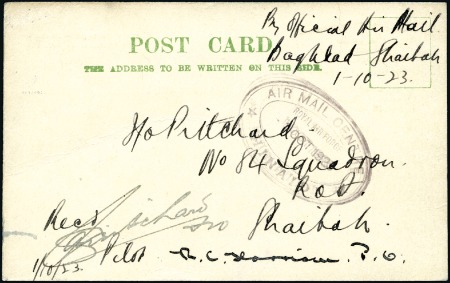 By Official Air Mail.
Baghdad Shaibah
1-10-23.
POST CARD
THE ADDRESS TO BE WRITTEN ON THIS SIDE.
AIR MAIL CENTRE
F/o Pritchard
No 84 Squadron.
R.A.F.
Shaibah.
Recd
Pritchard
F/O
1/10/23.
Pilot